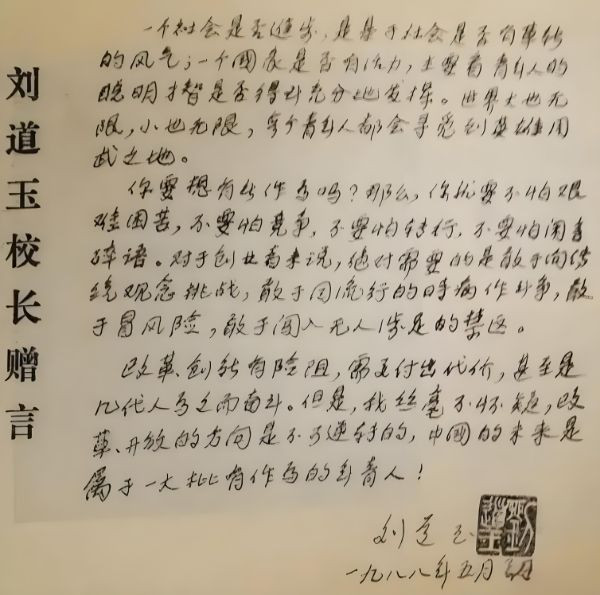 刘道玉校长赠言
一个社会是否进步，是基于社会是否有革新
的风气；一个國家是否有活力，主要看青年人的
聪明才智是否得到充分地发挥。世界大也无
限，小也无限，每个青年人都会寻觅到英雄用
武之地。
你要想有所作为吗？那么，你就要不怕艰
难困苦，不要怕竞争，不要怕转行，不要怕闲言
碎语。对于创业者来说，他们需要的是敢于向传
统观念挑战，敢于同流行的时病作斗争，敢
于冒风险，敢于闯入无人涉足的禁区。
改革、创新有险阻，需要付出代价，甚至是
几代人为之而奋斗。但是，我丝毫不怀疑，改
革、开放的方向是不可逆转的，中國的未来是
属于一大批有作为的年青人！
刘道玉
一九八八年五月